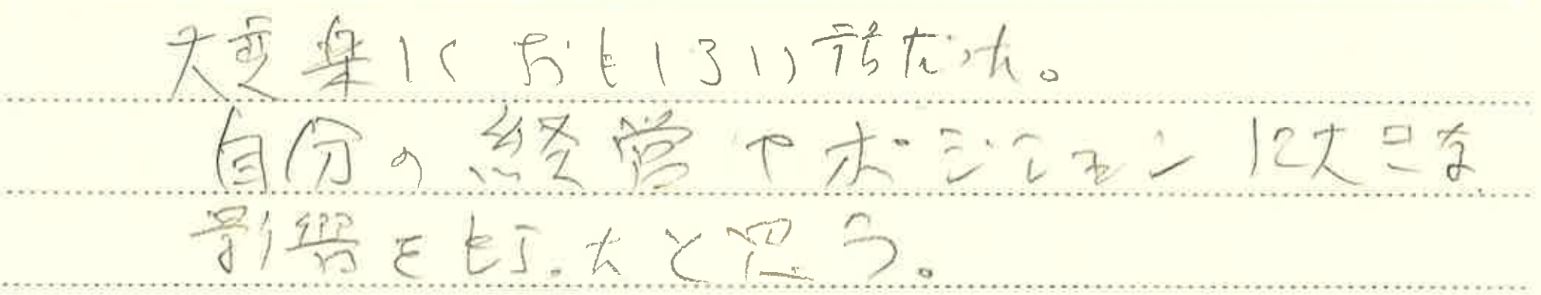 大変楽しくおもしろい話だった。
自分の経営やポジションに大きな
影響をもらったと思う。